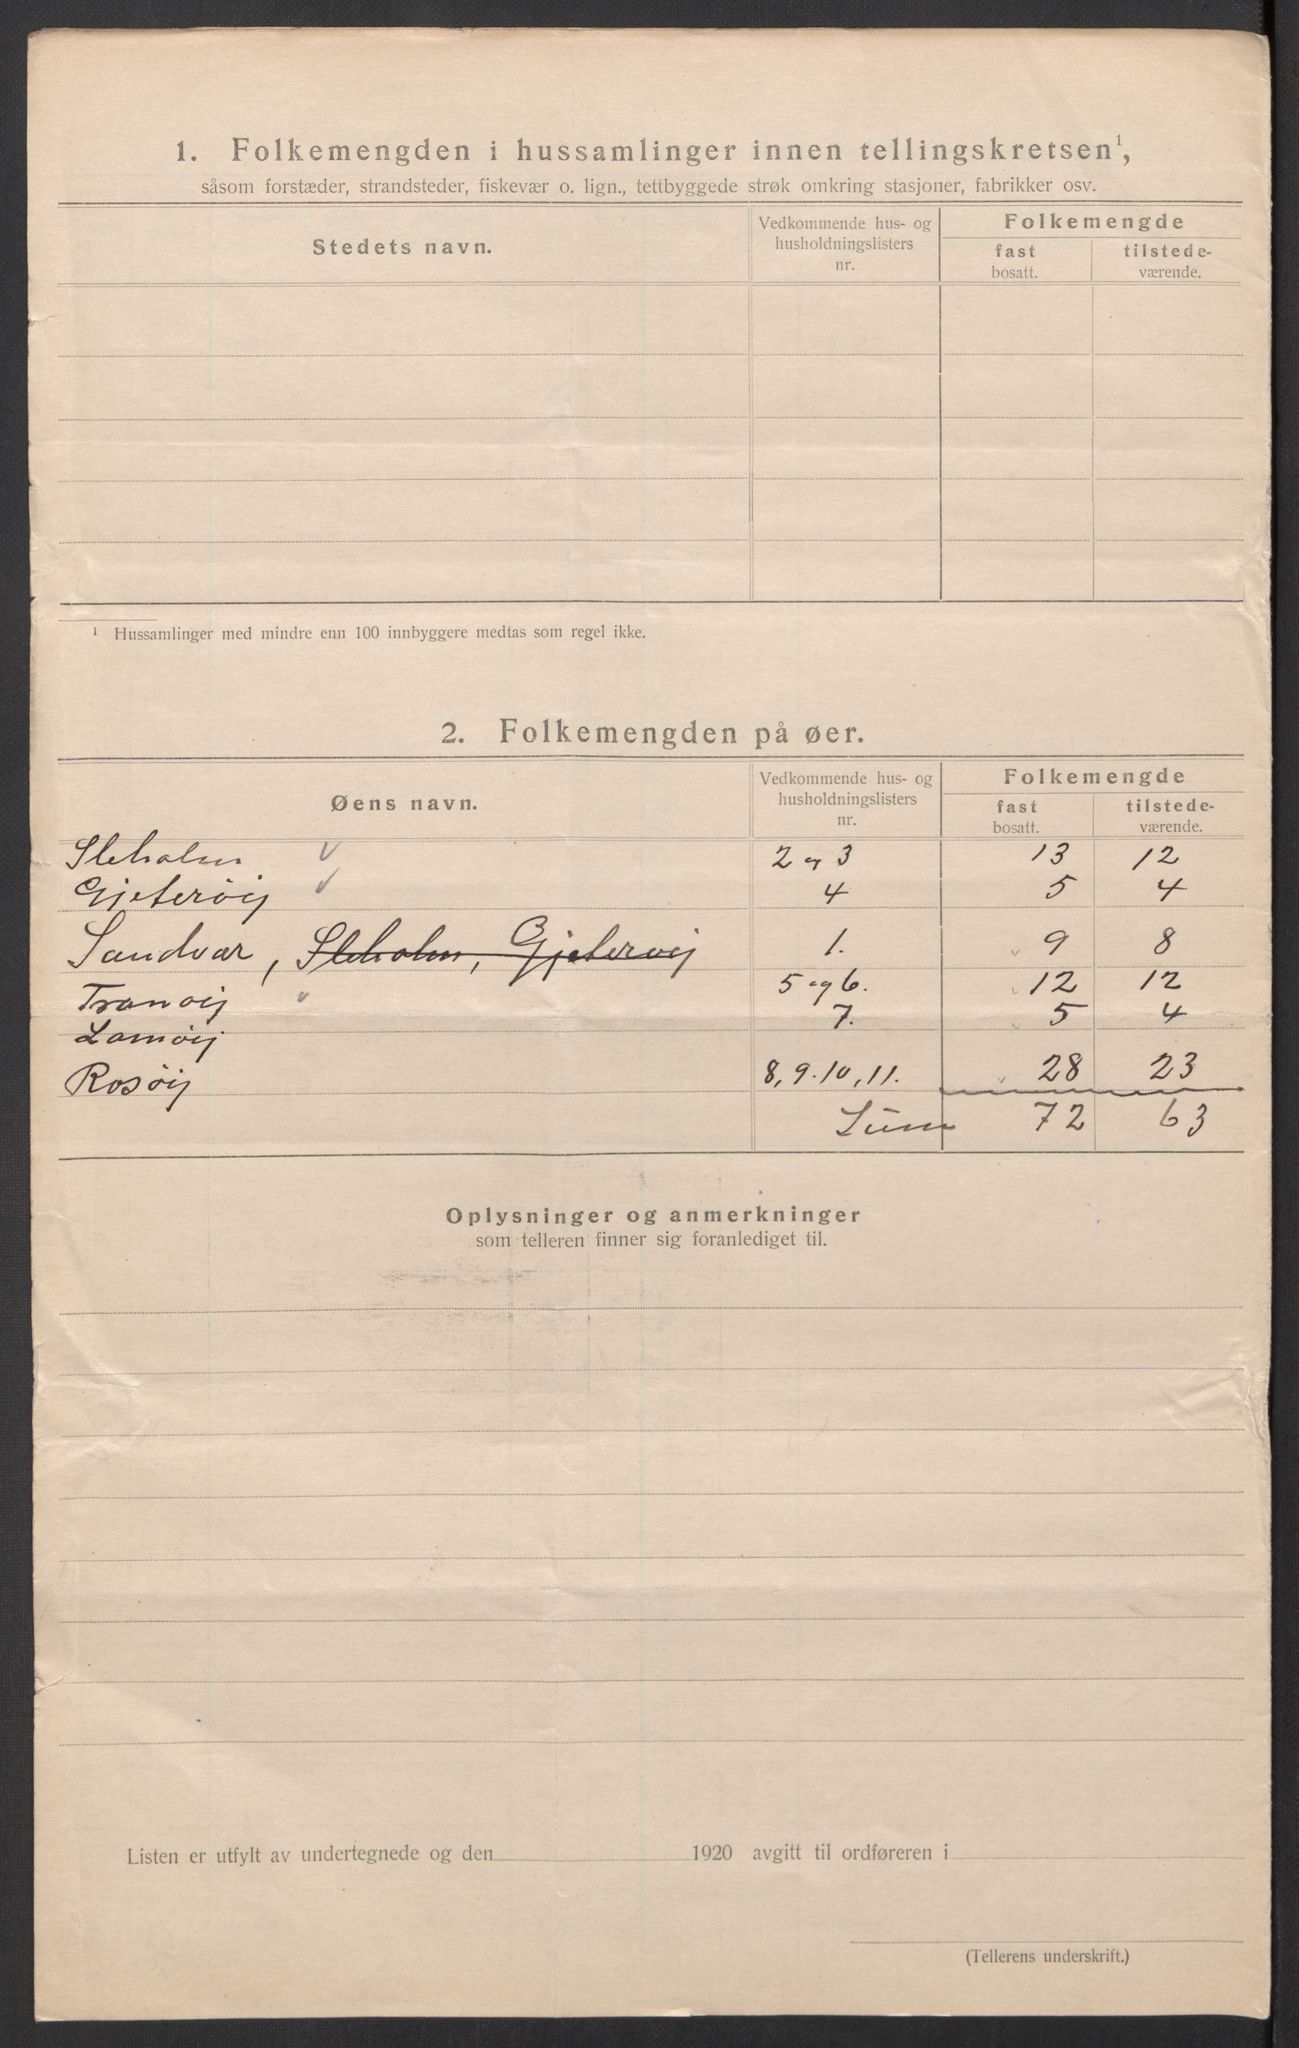 1. Folkemengden i hussamlinger innen tellingskretsen¹,
såsom forstæder, strandsteder, fiskevær o. lign., tettbyggede strøk omkring stasjoner, fabrikker osv.
Stedets navn.
Vedkommende hus- og husholdningslisters nr.
Folkemengde
fast bosatt.
tilstede-værende.
¹ Hussamlinger med mindre enn 100 innbyggere medtas som regel ikke.
2. Folkemengden på øer.
Øens navn.
Vedkommende hus- og husholdningslisters nr.
Folkemengde
fast bosatt.
tilstede-værende.
Sleholm 2 og 3 13 12
Gjeterøij 4 5 4
Sandvær, Sleholm, Gjeterøij 1. 9 8
Tranøij 5 og 6. 12 12
Lamøij 7. 5 4
Rosøij 8, 9. 10, 11. 28 23
Sum 72 63
Oplysninger og anmerkninger
som telleren finner sig foranlediget til.
Listen er utfylt av undertegnede og den 1920 avgitt til ordføreren i
(Tellerens underskrift.)